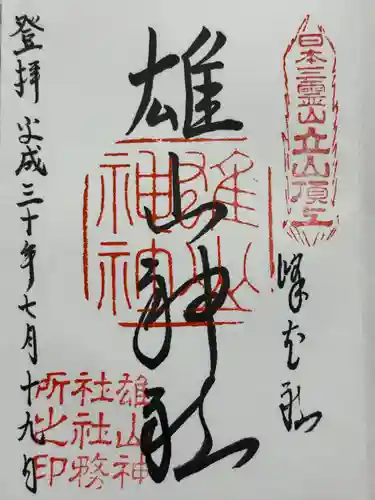 日本三霊山立山頂上
峰本社
雄山神社
雄山神社
雄山神
社社務
所之印
登拝 平成三十年七月十九日